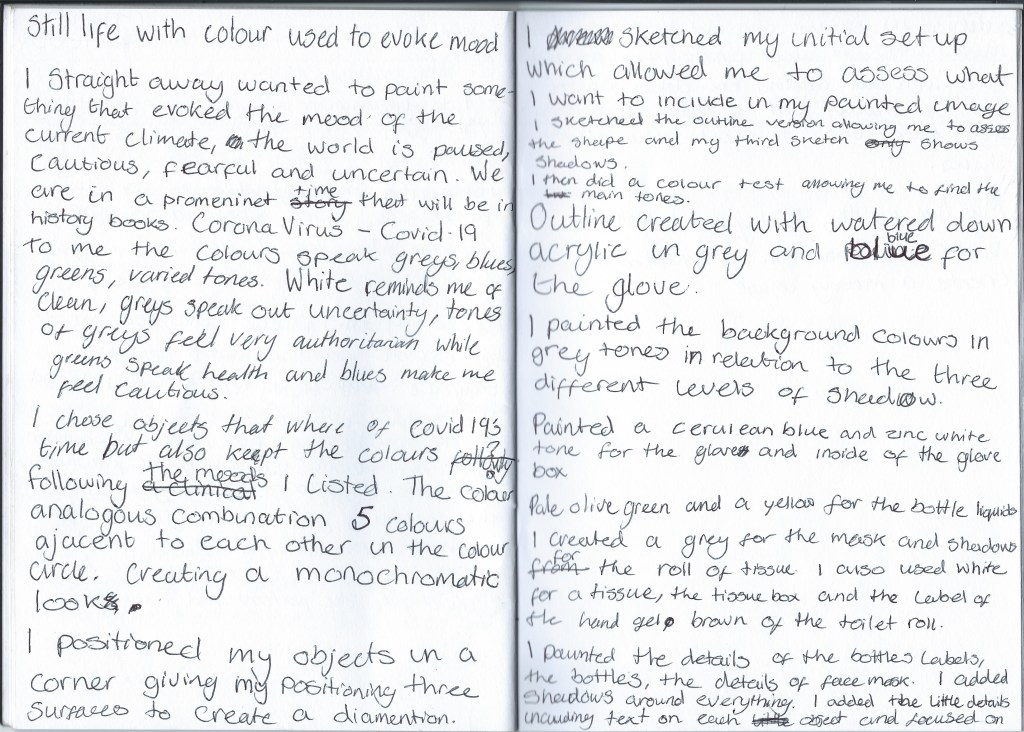 Still life with colour used to evoke mood
I Straight away wanted to paint some-
thing that evoked the mood of the
current climate, the world is paused,
cautious, fearful and uncertain. We
are in a promeninet time that will be in
history books. Corona Virus - Covid-19
to me the colours speak greys, blues,
greens, varied tones. White reminds me of
clean, greys speak out uncertainty, tones
of greys feel very authoritarian while
greens speak health and blues make me
feel cautious.
I chose objects that where of covid 19s
time but also keept the colours
following the moods I listed. The colour
analogous combination 5 colours
ajacent to each other in the colour
circle. Creating a monochromatic
look.
I positioned my objects in a
corner giving my positioning three
surfaces to create a diamention.
I sketched my initial set up
which allowed me to assess what
I want to include in my painted image
I sketched the outline version allowing me to assess
the shape and my third sketch shows
shadows.
I then did a colour test allowing me to find the
main tones.
Outline created with watered down
acrylic in grey and blue for
the glove.
I painted the background colours in
grey tones in relation to the three
different levels of shadow.
Painted a cerulean blue and zinc white
tone for the glove and inside of the glove
box
Pale olive green and a yellow for the bottle liquids
I created a grey for the mask and shadows
for the roll of tissue. I also used white
for a tissue, the tissue box and the label of
the hand gel, brown of the toilet roll.
I painted the details of the bottles labels,
the bottles, the details of face mask. I added
shadows around everything. I added the little details
including text on each object and focused on